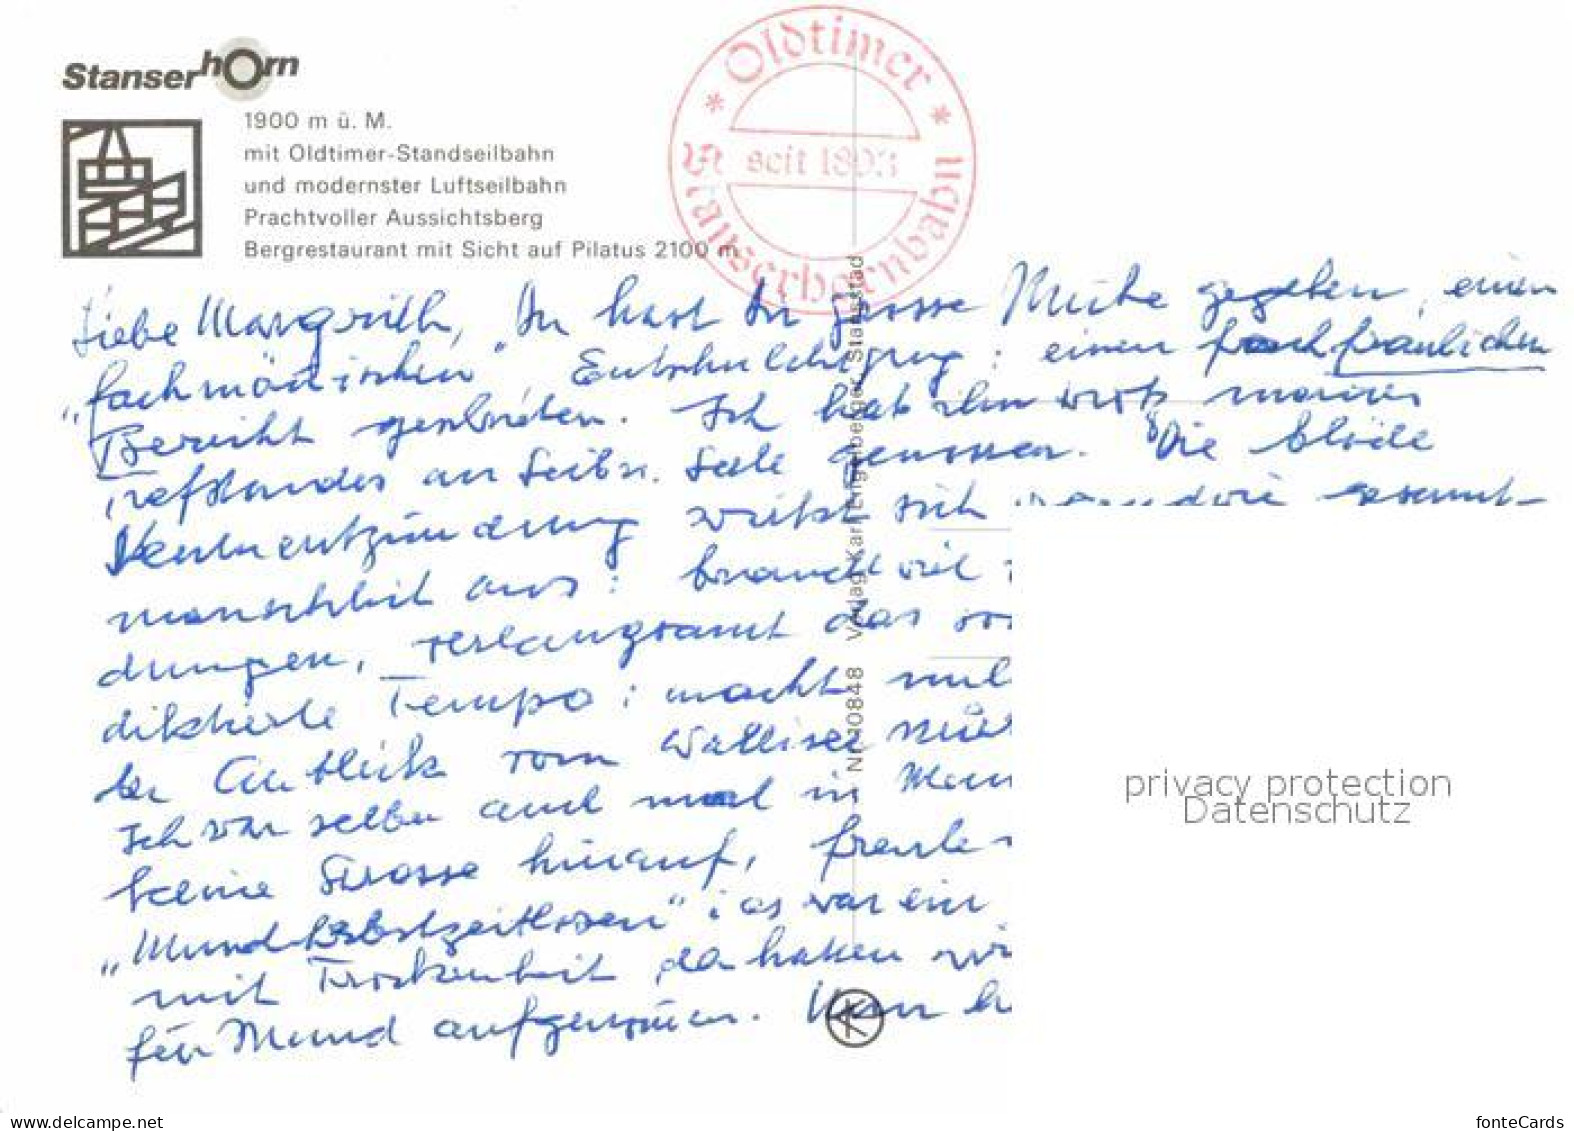 Stanserhorn
1900 m ü. M.
mit Oldtimer-Standseilbahn
und modernster Luftseilbahn
Prachtvoller Aussichtsberg
Bergrestaurant mit Sicht auf Pilatus 2100 m
* Oldtimer *
seit 1893
Stanserhornbahn
Liebe Margrith, Du hast Dir grosse Mühe gegeben, einen
"fachmännischen" Entschuldigung: einen fachfräulichen
Bericht geschrieben. Ich hab ihn trotz meines
an Leib u. Seele genommen. Die blöde
Nervenentzündung wirkt sich gesamt-
menschlich aus: braucht viel
dungen, verlangsamt das
diktierte Tempo; macht
der Anblick vom Walliser
Ich war selber auch mal in
keine Strasse hinauf,
"Mund-Herbstzeitlosen"; es war ein
mit Trockenheit, da hatten wir
für Mund aufgenommen.
Nr. 10848 Verlag Karl Engelberger, Stansstad
privacy protection
Datenschutz
www.delcampe.net
fonteCards